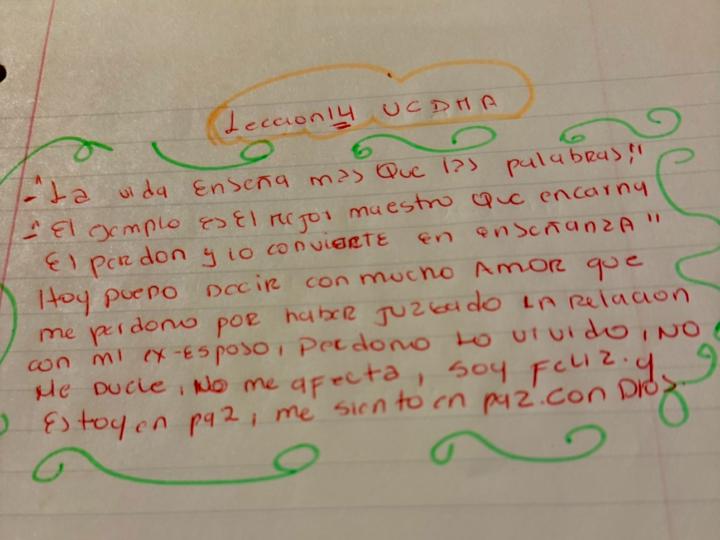 Leccion 14 UCDMA
-"La vida Enseña mas Que las palabras,"
-"El ejemplo es El mejor maestro Que encarna
El perdon y lo convierte en enseñanza"
Hoy puedo Decir con mucho AMOR que
me perdono por haber Juzgado la Relacion
con mi ex-esposo, perdono Lo vivido, NO
Me Duele, No me afecta, soy Feliz. y
Estoy en paz, me siento en paz. con Dios.